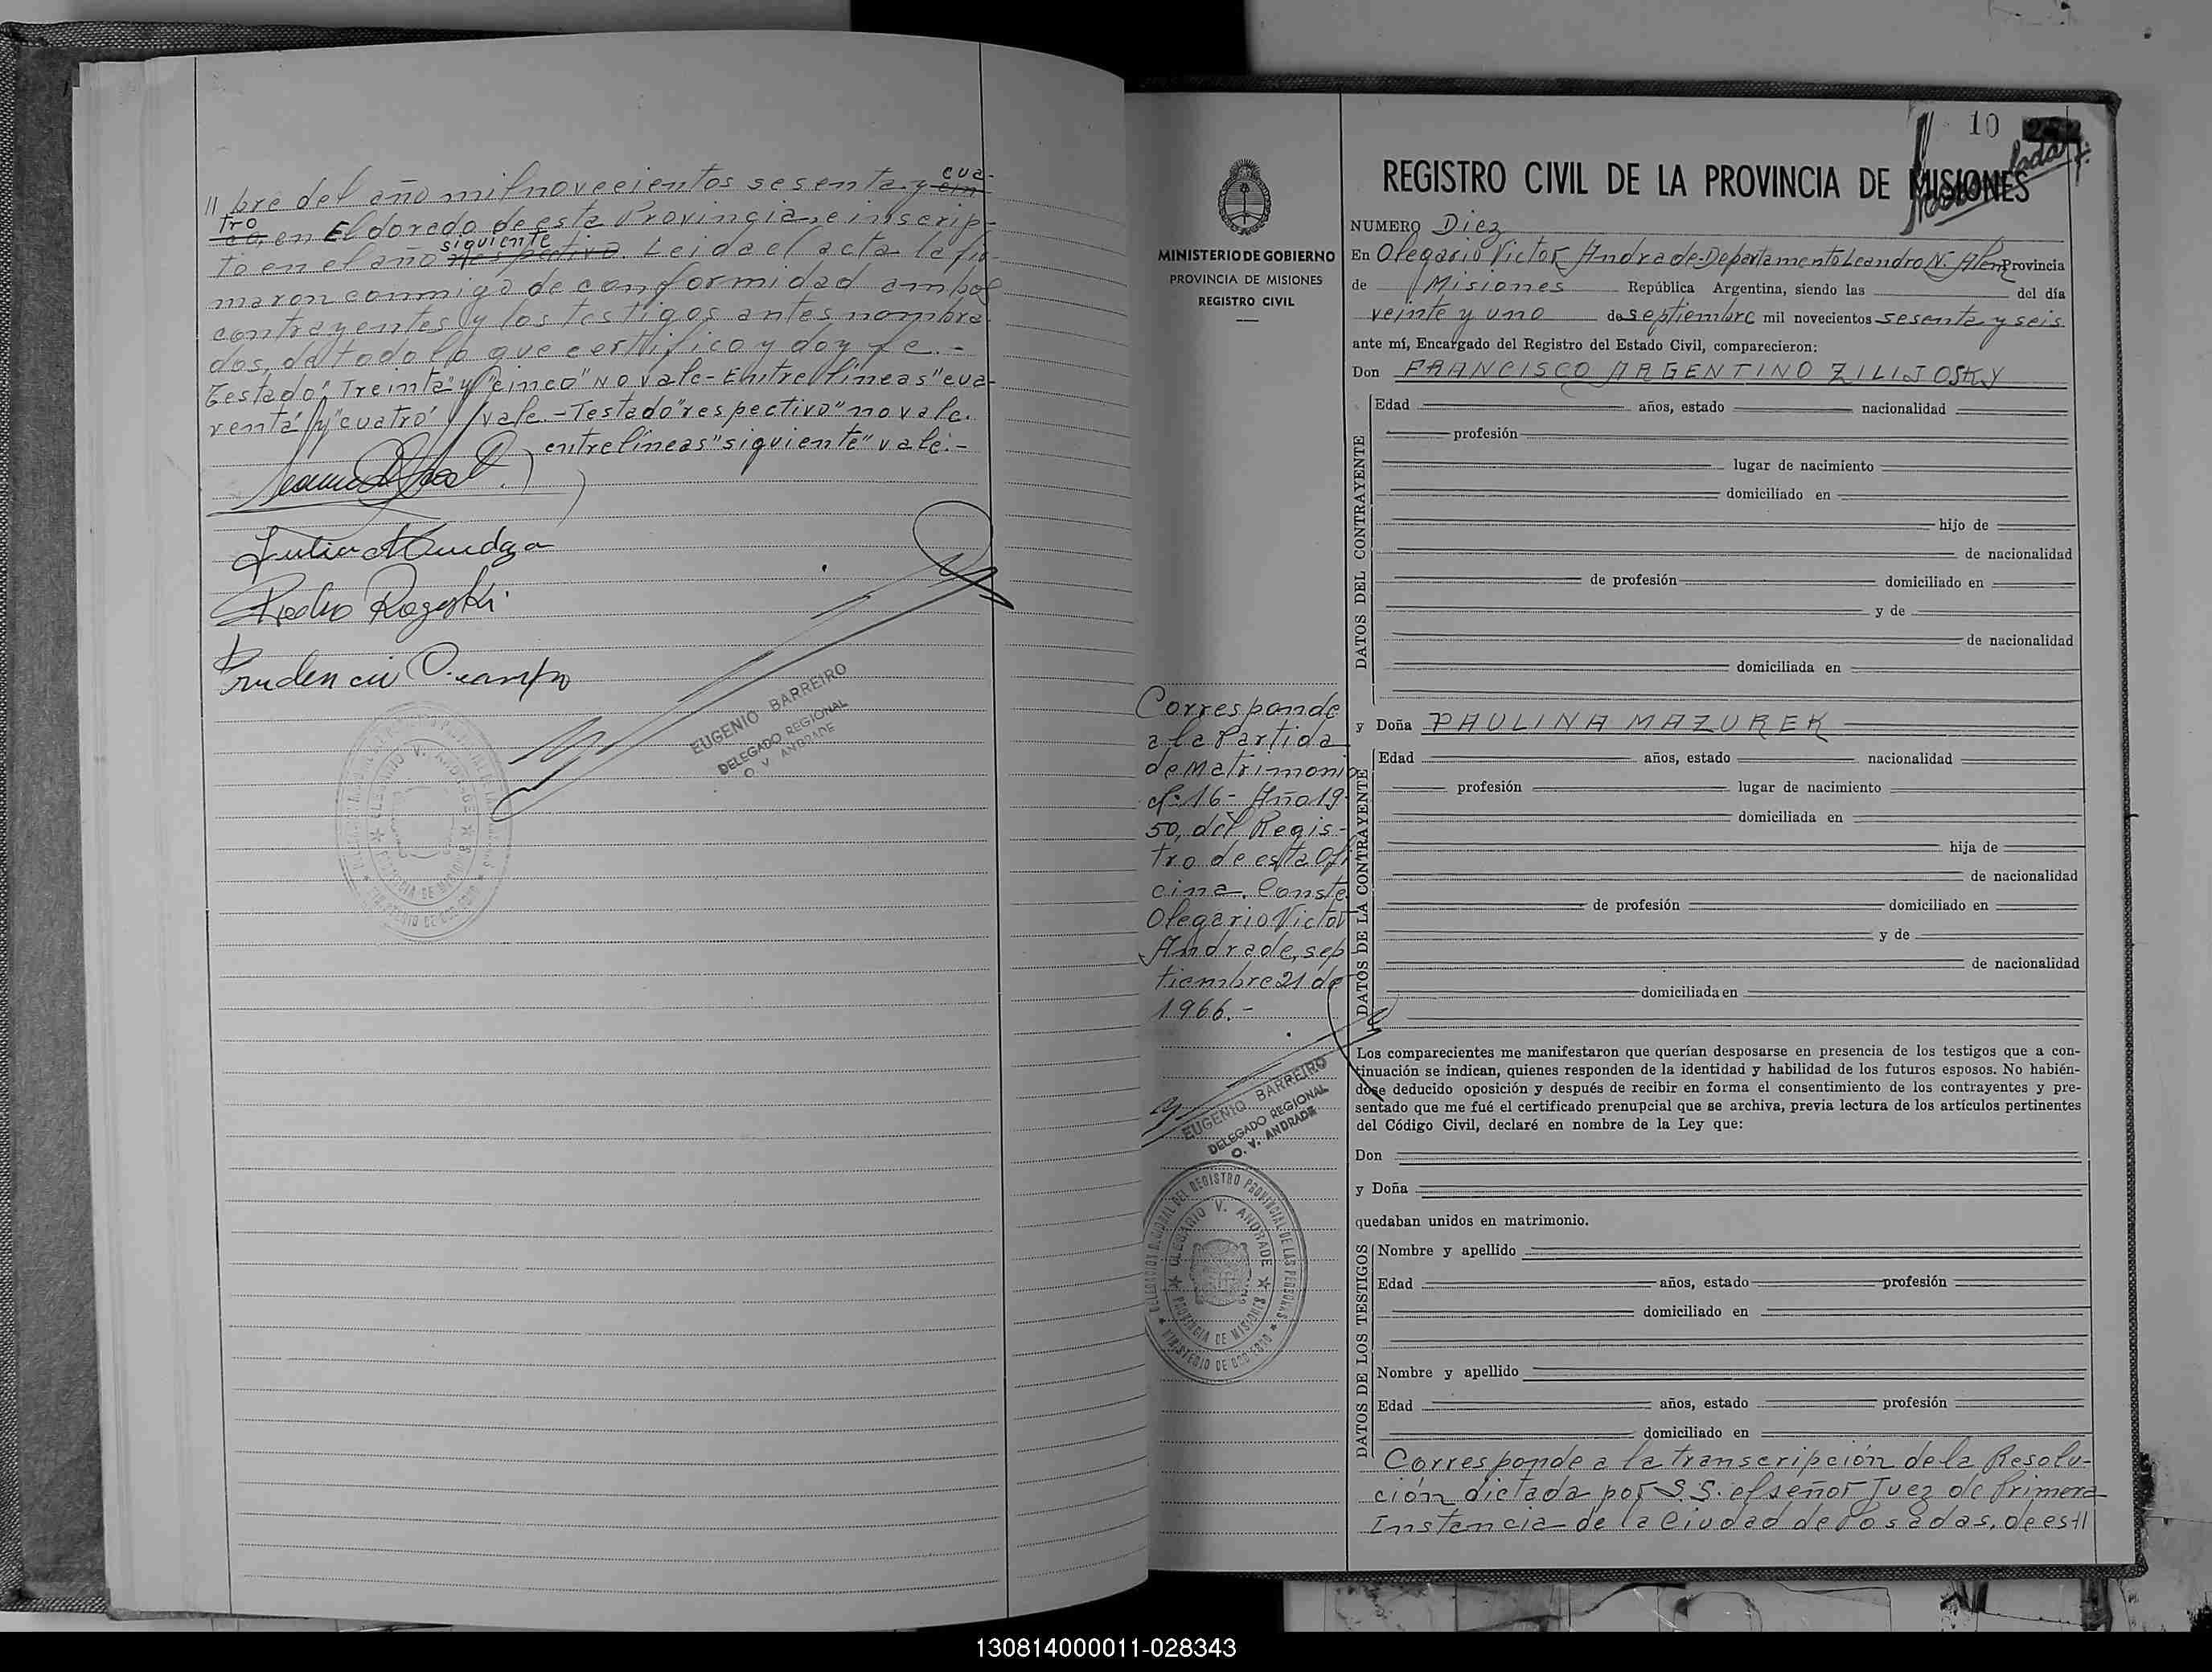 // bre del año mil novecientos sesenta y cin cua-
co, tro en Eldorado de esta Provincia, e inscrip-
to en el año respectivo siguiente. Leida el acta la fir-
maron conmigo de conformidad ambos
contrayentes y los testigos antes nombra-
dos, de todo lo que certifico y doy fe.-
Testado "Treinta" y "cinco" no vale - Entre líneas "cua-
renta" y "cuatro" vale - Testado "respectivo" no vale.
entre líneas "siguiente" vale.-
Prudencio Ocampo
EUGENIO BARREIRO
DELEGADO REGIONAL
O. V. ANDRADE
10
REGISTRO CIVIL DE LA PROVINCIA DE MISIONES
MINISTERIO DE GOBIERNO
PROVINCIA DE MISIONES
REGISTRO CIVIL
NUMERO Diez
En Olegario Victor Andrade-Departamento Leandro N. Alem Provincia
de Misiones República Argentina, siendo las del día
veinte y uno de septiembre mil novecientos sesenta y seis
ante mí, Encargado del Registro del Estado Civil, comparecieron:
Don FRANCISCO ARGENTINO ZILIJOSKY
DATOS DEL CONTRAYENTE
Edad años, estado nacionalidad
profesión
lugar de nacimiento
domiciliado en
hijo de
de nacionalidad
de profesión domiciliado en
y de
de nacionalidad
domiciliada en
y Doña PAULINA MAZUREK
DATOS DE LA CONTRAYENTE
Edad años, estado nacionalidad
profesión lugar de nacimiento
domiciliada en
hija de
de nacionalidad
de profesión domiciliado en
y de
de nacionalidad
domiciliada en
Corresponde
a la Partida
de Matrimonio
Nº 16- Año 19-
50, del Regis-
tro de esta Ofi
cina. Conste
Olegario Victor
Andrade, sep
tiembre 21 de
1966.-
EUGENIO BARREIRO
DELEGADO REGIONAL
O. V. ANDRADE
DELEGACION REGIONAL DEL REGISTRO PROVINCIAL DE LAS PERSONAS
OLEGARIO V. ANDRADE
PROVINCIA DE MISIONES
MINISTERIO DE GOBIERNO
Los comparecientes me manifestaron que querían desposarse en presencia de los testigos que a con-
tinuación se indican, quienes responden de la identidad y habilidad de los futuros esposos. No habién-
dose deducido oposición y después de recibir en forma el consentimiento de los contrayentes y pre-
sentado que me fué el certificado prenupcial que se archiva, previa lectura de los artículos pertinentes
del Código Civil, declaré en nombre de la Ley que:
Don
y Doña
quedaban unidos en matrimonio.
DATOS DE LOS TESTIGOS
Nombre y apellido
Edad años, estado profesión
domiciliado en
Nombre y apellido
Edad años, estado profesión
domiciliado en
Corresponde a la transcripción de la Resolu-
ción dictada por S.S. el señor Juez de Primera
Instancia de la Ciudad de Posadas, de es-//
130814000011-028343